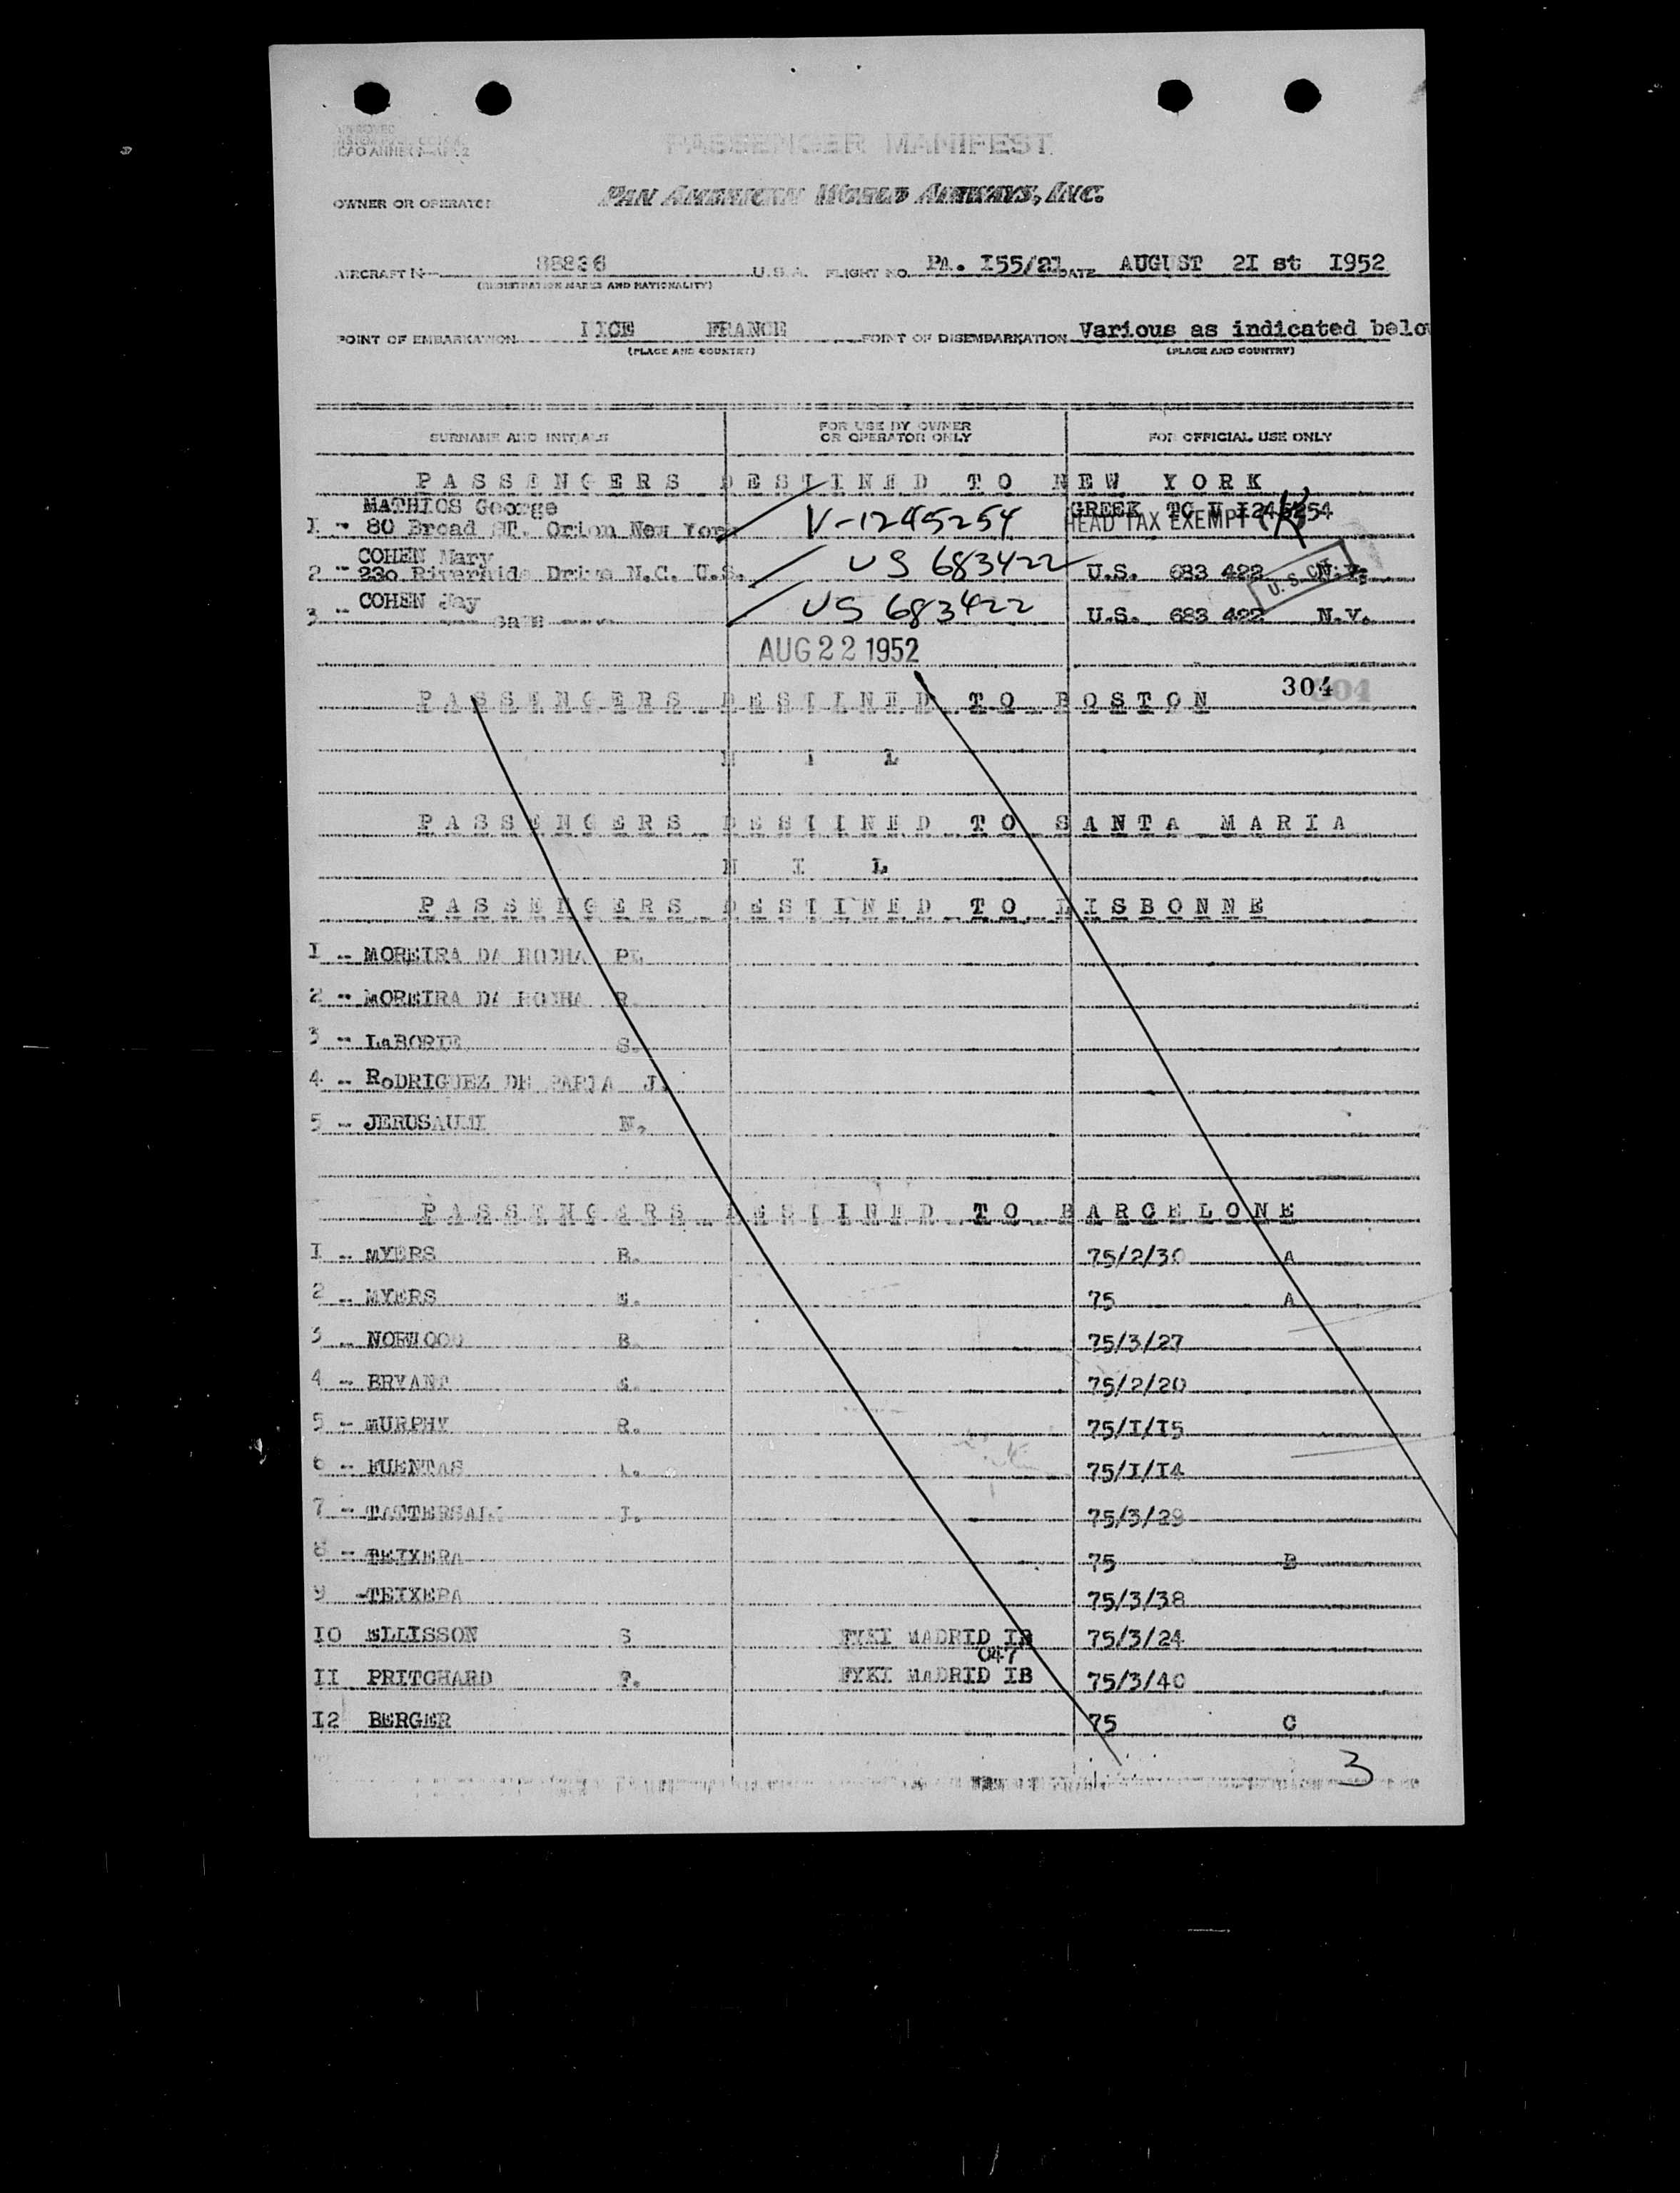 PASSENGER MANIFEST
OWNER OR OPERATOR PAN AMERICAN WORLD AIRWAYS, INC.
AIRCRAFT 88836 U.S.A. FLIGHT NO. PA. I55/21 DATE AUGUST 2I st I952
(REGISTRATION MARKS AND NATIONALITY)
POINT OF EMBARKATION NICE FRANCE POINT OF DISEMBARKATION Various as indicated below
(PLACE AND COUNTRY) (PLACE AND COUNTRY)
SURNAME AND INITIALS FOR USE BY OWNER OR OPERATOR ONLY FOR OFFICIAL USE ONLY
PASSENGERS DESTINED TO NEW YORK
MATHIOS George GREEK TC V I245254
1 - 80 Broad ST. Orion New York V-1245254 HEAD TAX EXEMPT
COHEN Mary
2 - 230 Riverside Drive N.C. U.S. US 683422 U.S. 683 422 N.Y. U.S. CIT
COHEN Jay
3 -- US 683422 U.S. 683 422 N.Y.
AUG 22 1952
304
PASSENGERS DESTINED TO BOSTON
N I L
PASSENGERS DESTINED TO SANTA MARIA
N I L
PASSENGERS DESTINED TO LISBONNE
I -- MOREIRA DA ROCHA
2 -- MOREIRA DA ROCHA R.
3 -- LaBORIE S.
4 -- RoDRIGUEZ DE J.
5 -- N.
PASSENGERS DESTINED TO BARCELONE
I -- MYERS B. 75/2/30 A
2 -- MYERS E. 75 A
3 -- NORWOOD B. 75/3/27
4 -- BRYANT 75/2/20
5 -- mURPHY R. 75/I/I5
6 -- FUENTAS 75/I/I4
7 -- TATTERSALL J. 75/3/29
8 -- TEIXERA 75 B
9 -TEIXERA 75/3/38
IO ELLISSON S FYKI MADRID IB 75/3/24
047
II PRITCHARD FYKI MADRID IB 75/3/40
I2 BERGER 75 C
3